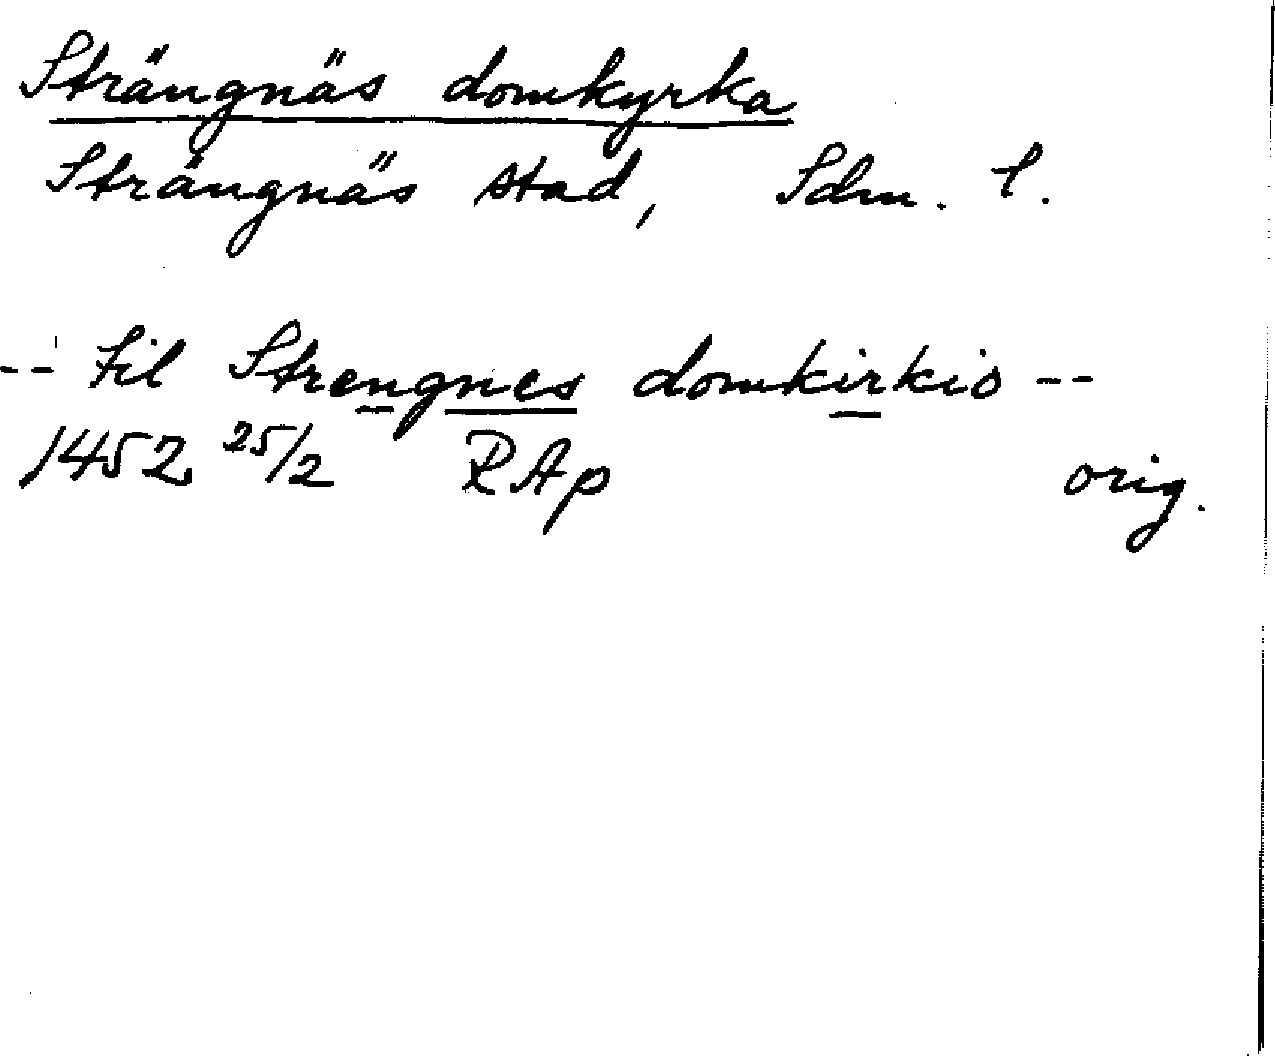 Strängnäs domkyrka
Strängnäs stad, Sdm. l.
-- til Strengnes domkirkio --
1452 25/2 RAp orig.